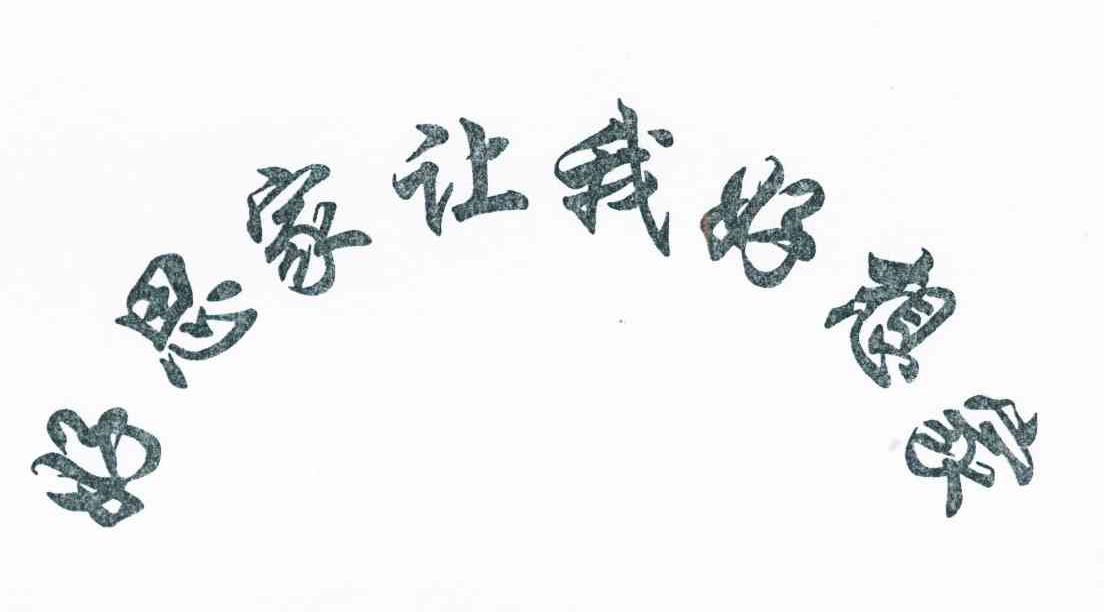 好思家让我好想家